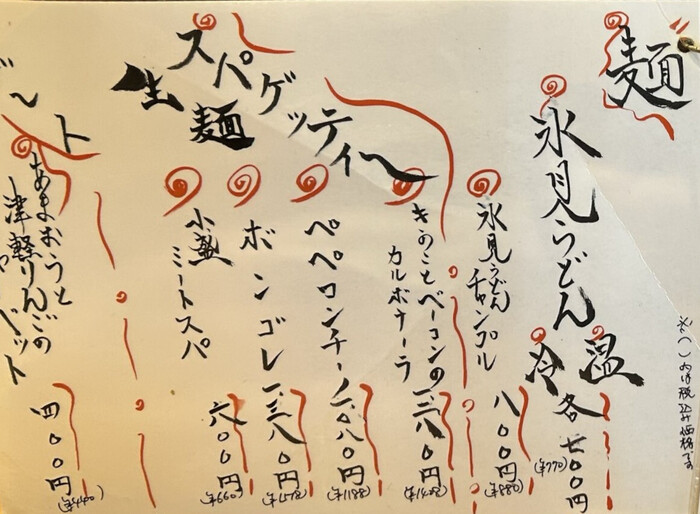 麺
※( )内は税込み価格です
氷見うどん
温
冷
各七〇〇円
(¥770)
氷見うどん
チャンプル
八〇〇円
(¥880)
スパゲッティ〜
生麺
きのことベーコンの
カルボナーラ
(¥1408)
ペペロンチーノ
一、〇八〇円
(¥1188)
ボンゴレ
小盛
ミートスパ
六〇〇円
(¥660)
〜ト
あまおうと
津軽りんごの
ット
四〇〇円
(¥440)